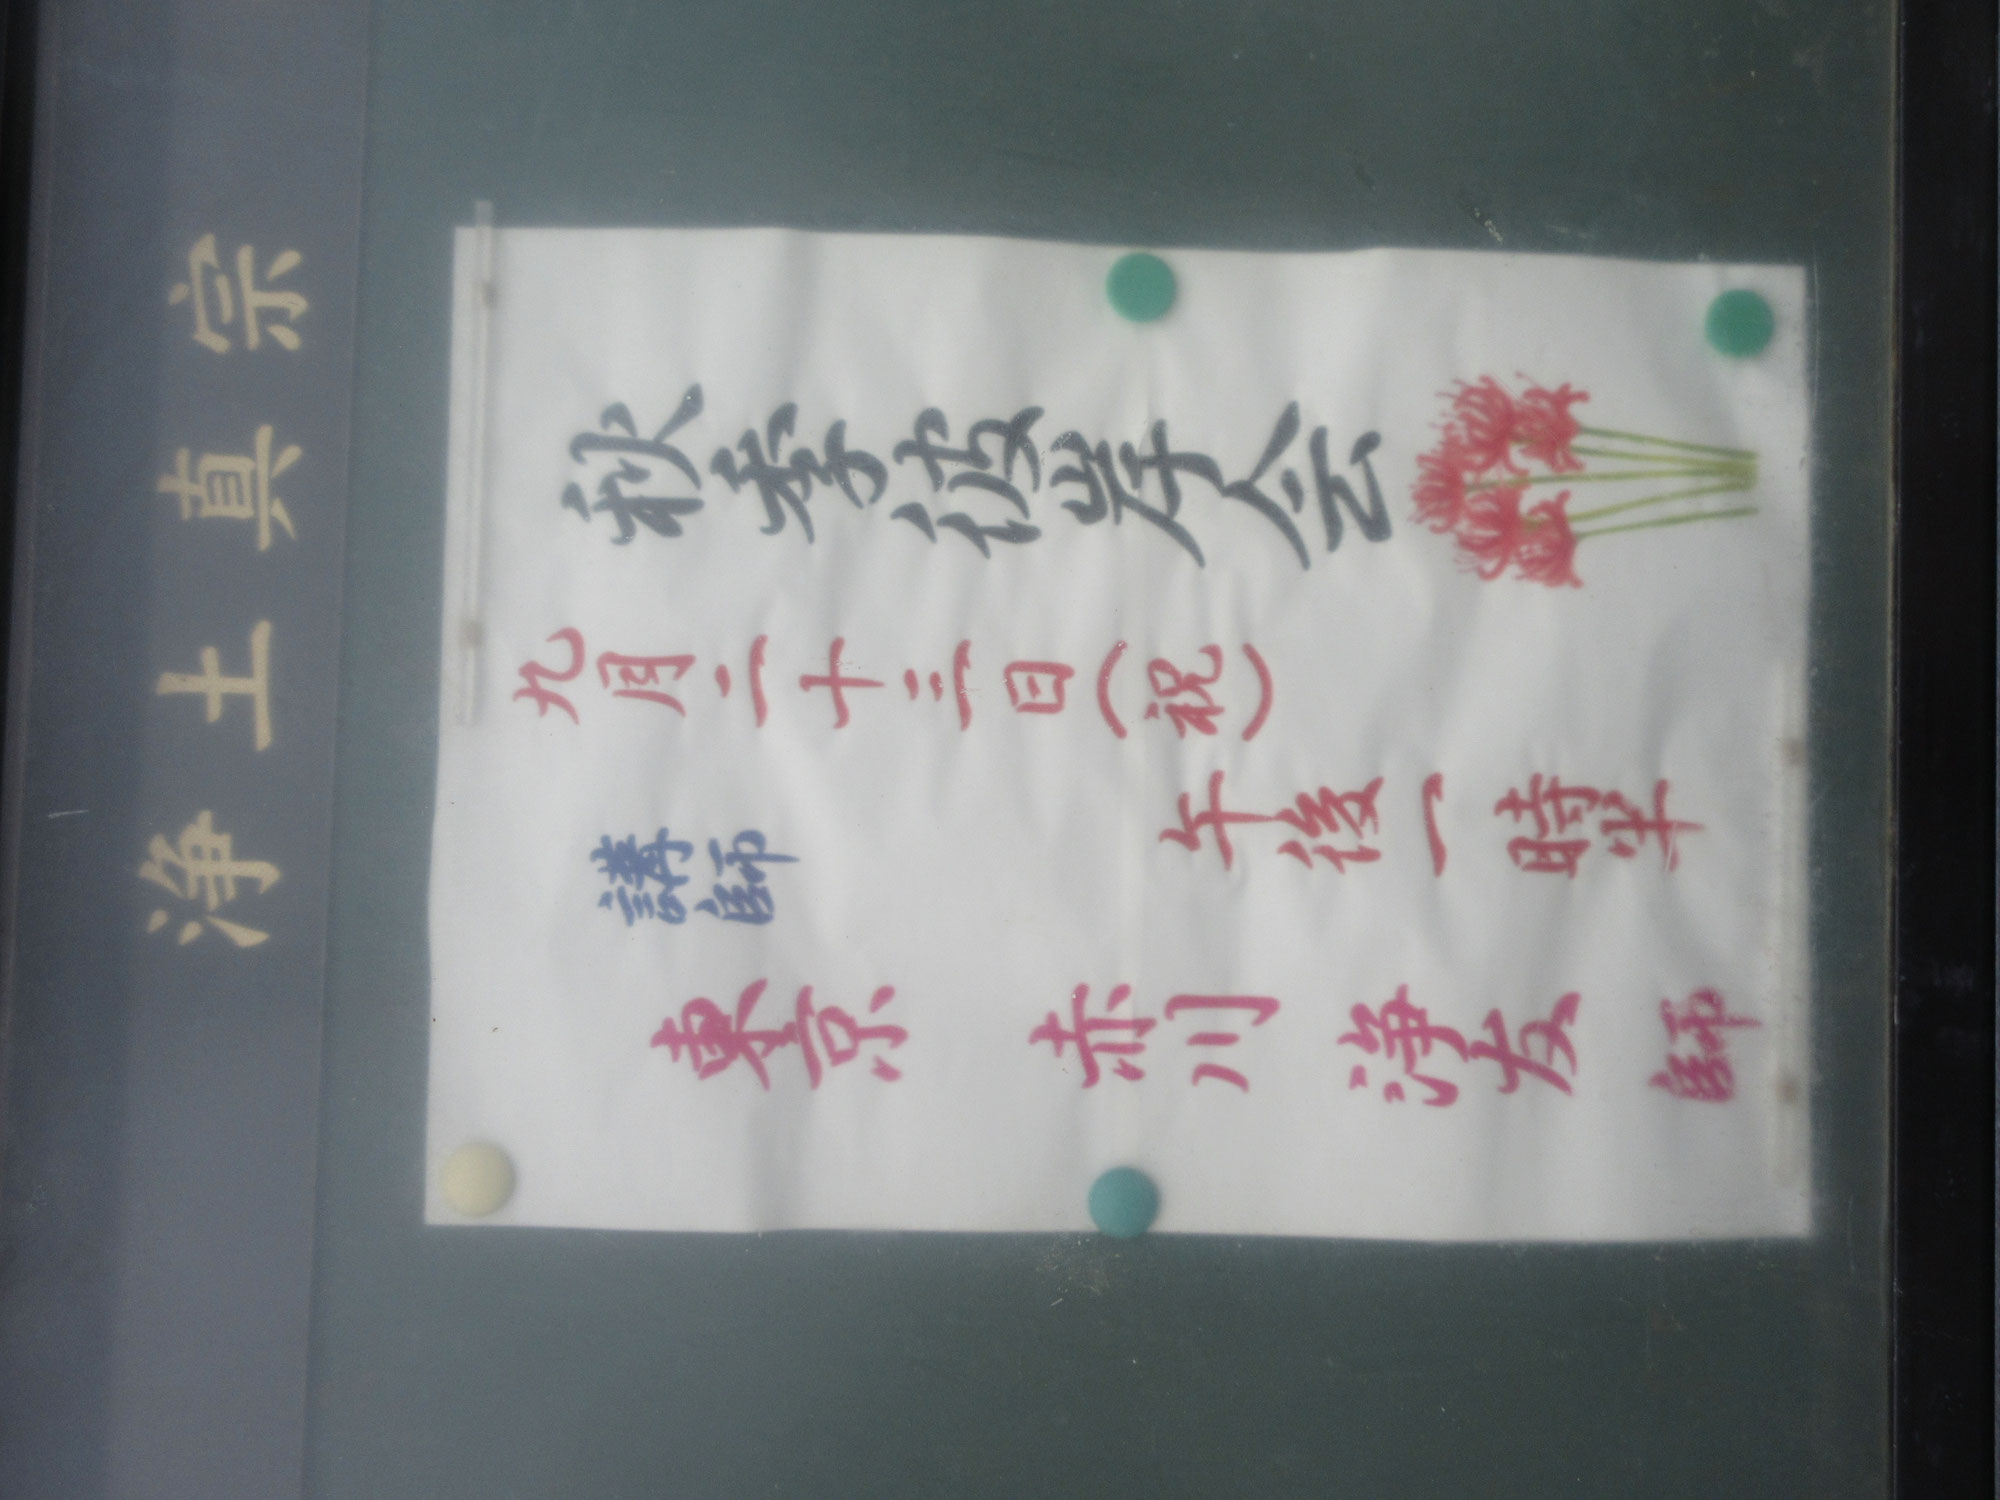 浄土真宗
秋季彼岸会
九月二十三日(祝)
午後一時半
講師
東京 赤川浄友師